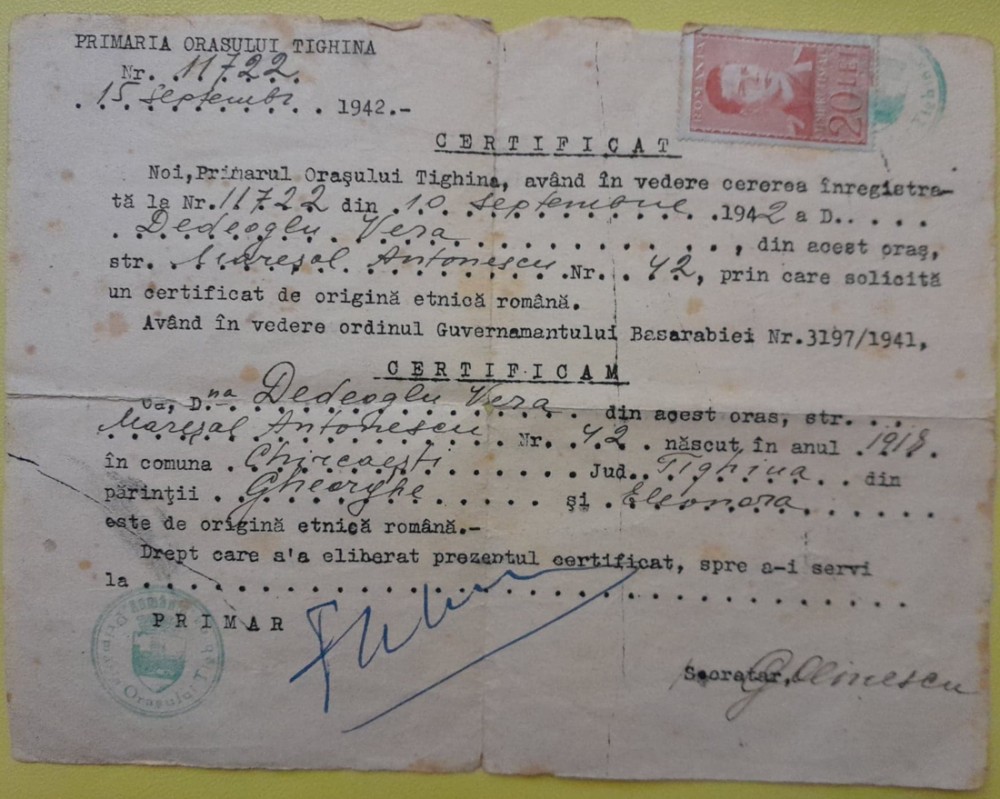 PRIMARIA ORASULUI TIGHINA
Nr. 11722
15 Septembr 1942.-
ROMANIA
20 LEI
CERTIFICAT
Noi, Primarul Oraşului Tighina, având în vedere cererea înregistra-
tă la Nr. 11722 din 10 Septembrie 1942 a D.....
Dedeoglu Vera, din acest oraş,
str. Mareşal Antonescu Nr. 42, prin care solicită
un certificat de origină etnică română.
Având în vedere ordinul Guvernamantului Basarabiei Nr.3197/1941,
CERTIFICAM
Că, D.na Dedeoglu Vera din acest oras, str...
Mareşal Antonescu Nr. 42 născut în anul 1918.
în comuna Chircaeşti Jud. Tighina din
părinţii Gheorghe şi Eleonora
este de origină etnică română.-
Drept care s'a eliberat prezentul certificat, spre a-i servi
la
PRIMAR
Secretar,
România
Primăria Oraşului Tighina